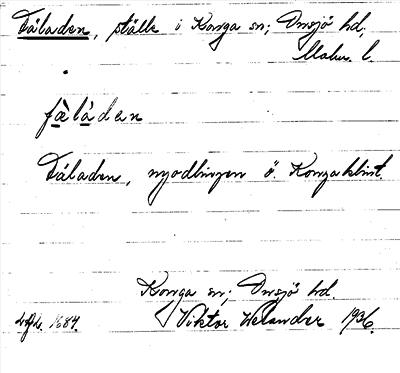 Fäladen, ställe i Konga sn; Onsjö hd,
Malm. l.
fä̀làden
Fäladen, nyodlingen ö. Kongaklint.
Konga sn; Onsjö hd.
Viktor Welander 1936.
1684.